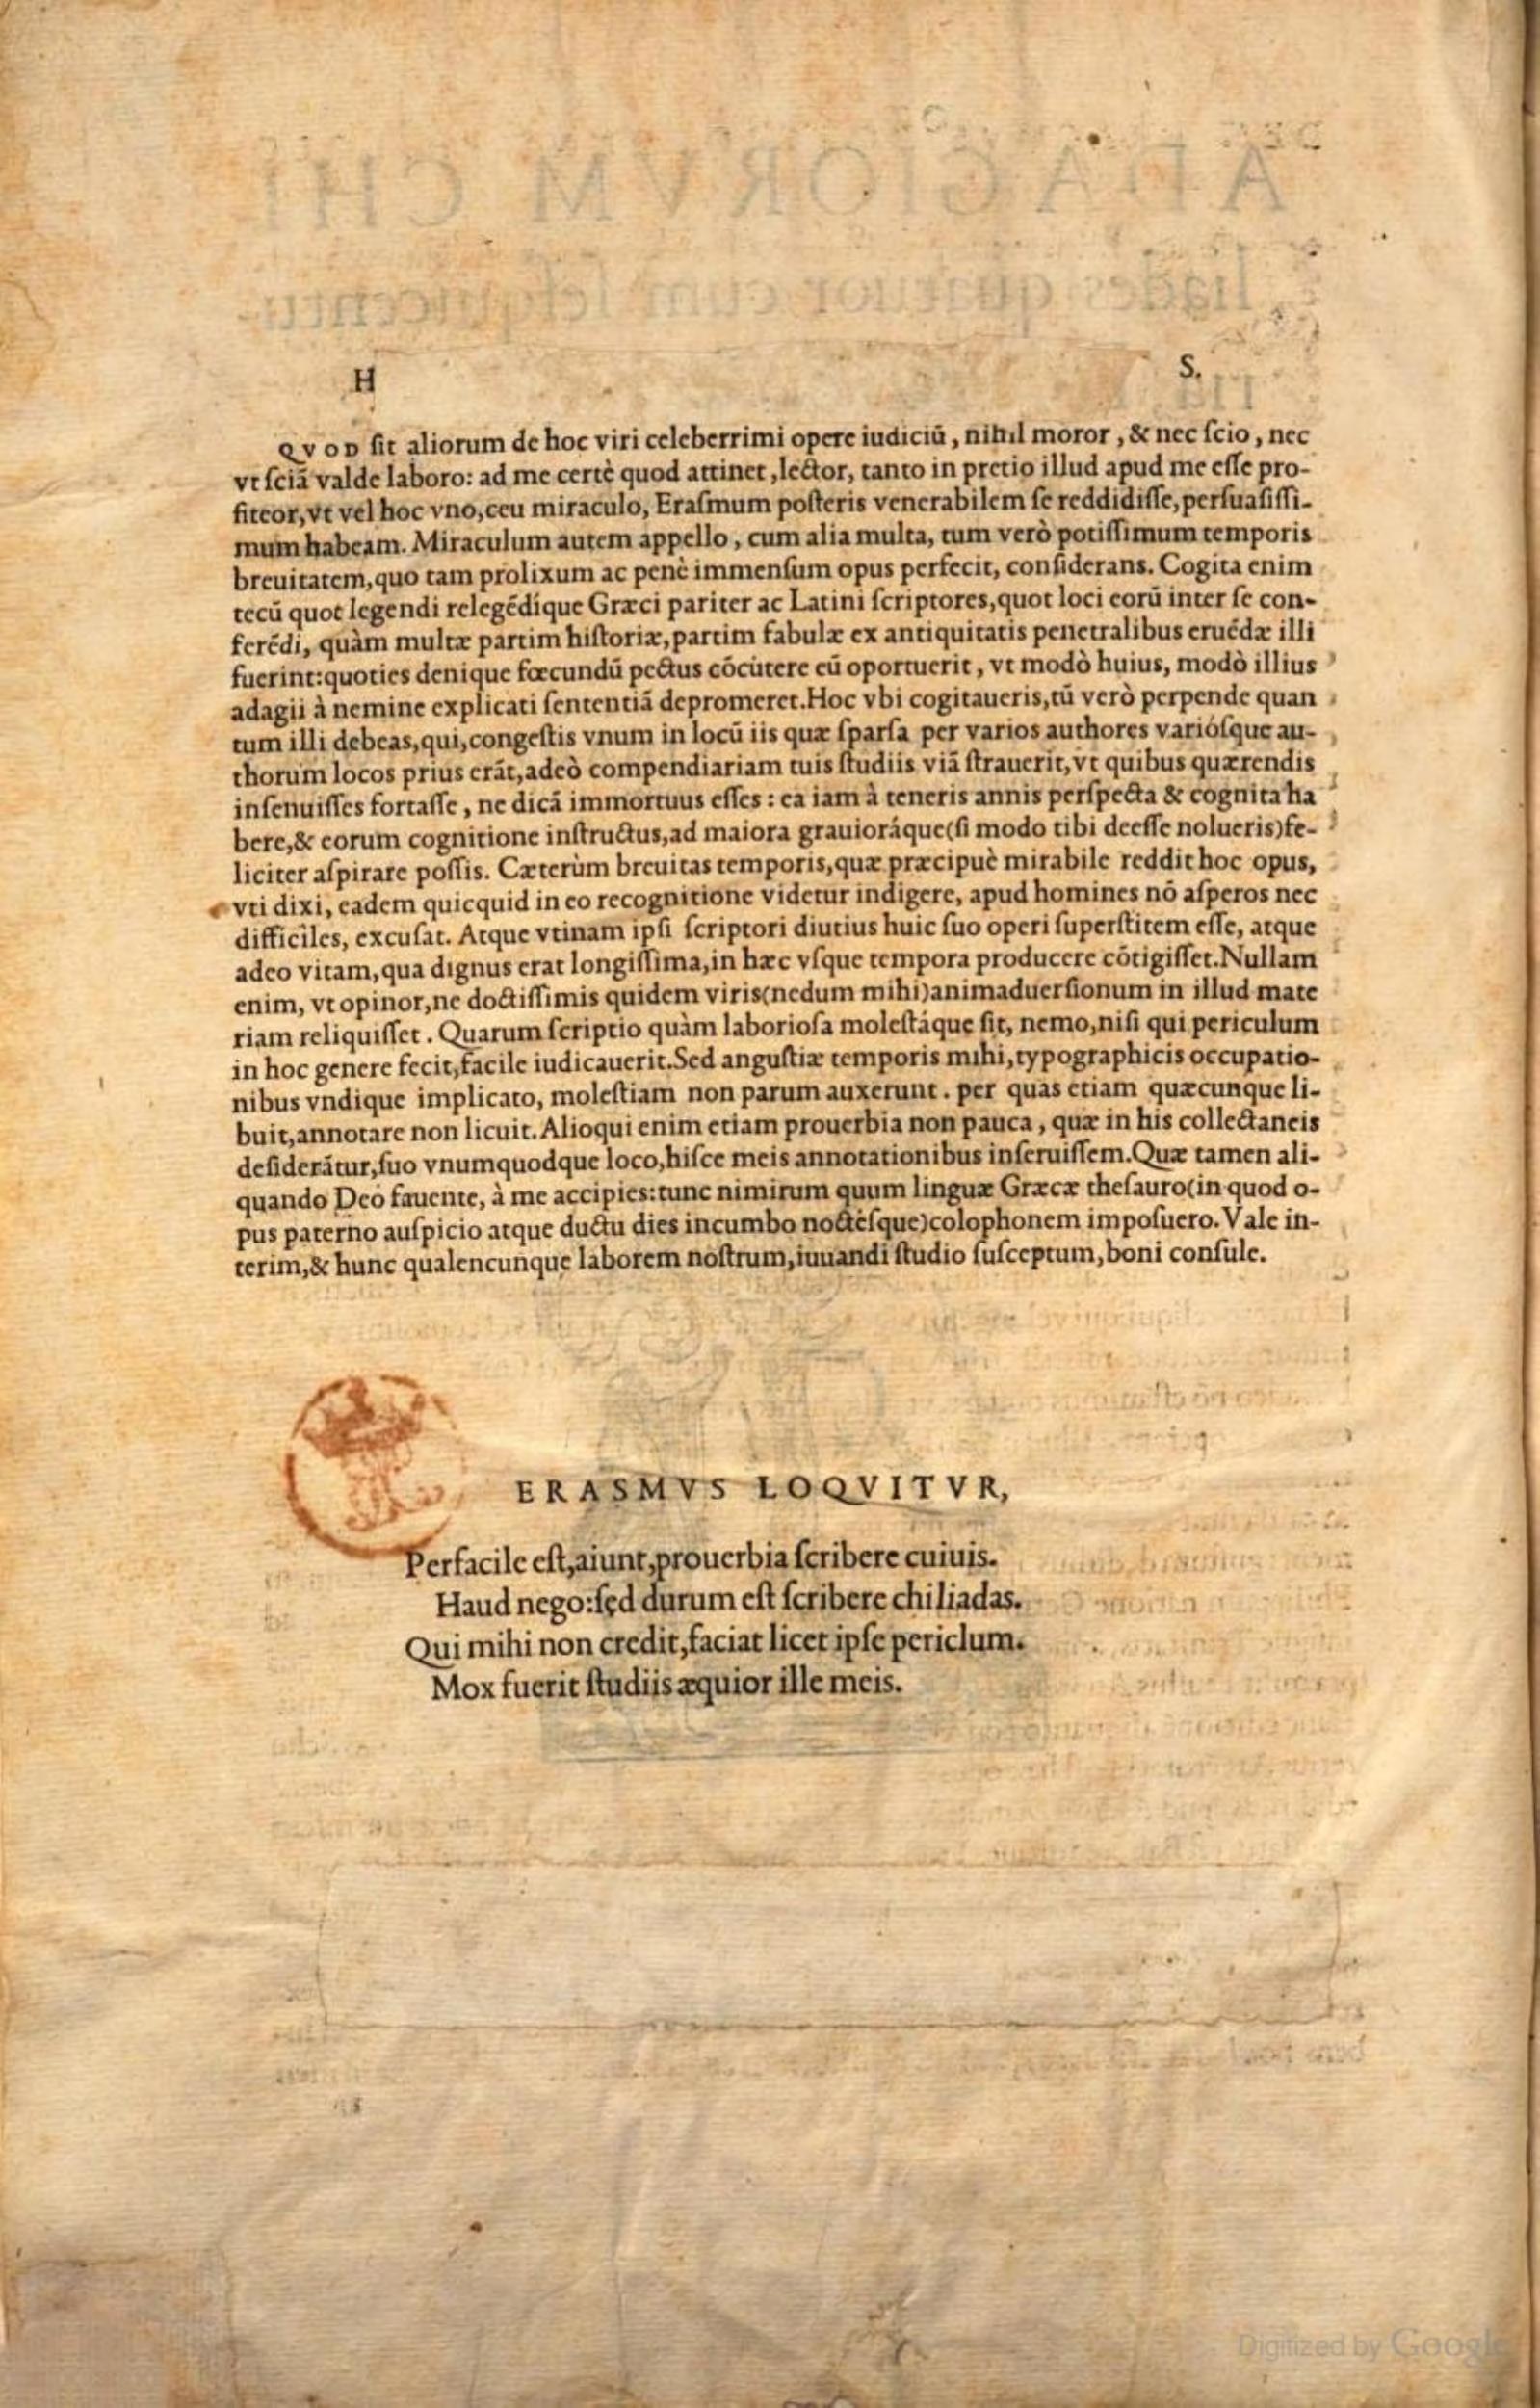 H S.
QVOD ſit aliorum de hoc viri celeberrimi opere iudiciũ, nihil moror, & nec ſcio, nec
vt ſciã valde laboro: ad me certè quod attinet, lector, tanto in pretio illud apud me eſſe pro-
fiteor, vt vel hoc vno, ceu miraculo, Eraſmum poſteris venerabilem ſe reddidiſſe, perſuaſiſſi-
mum habeam. Miraculum autem appello, cum alia multa, tum verò potiſſimum temporis
breuitatem, quo tam prolixum ac penè immenſum opus perfecit, conſiderans. Cogita enim
tecũ quot legendi relegẽdíque Græci pariter ac Latini ſcriptores, quot loci eorũ inter ſe con-
ferẽdi, quàm multæ partim hiſtoriæ, partim fabulæ ex antiquitatis penetralibus eruẽdæ illi
fuerint: quoties denique fœcundũ pectus cõcutere eũ oportuerit, vt modò huius, modò illius
adagii à nemine explicati ſententiã depromeret. Hoc vbi cogitaueris, tũ verò perpende quan
tum illi debeas, qui, congeſtis vnum in locũ iis quæ ſparſa per varios authores variόſque au-
thorum locos prius erãt, adeò compendiariam tuis ſtudiis viã ſtrauerit, vt quibus quærendis
inſenuiſſes fortaſſe, ne dicã immortuus eſſes: ea iam à teneris annis perſpecta & cognita ha
bere, & eorum cognitione inſtructus, ad maiora grauioráque (ſi modo tibi deeſſe nolueris) fe-
liciter aſpirare poſſis. Cæterùm breuitas temporis, quæ præcipuè mirabile reddit hoc opus,
vti dixi, eadem quicquid in eo recognitione videtur indigere, apud homines nõ aſperos nec
difficiles, excuſat. Atque vtinam ipſi ſcriptori diutius huic ſuo operi ſuperſtitem eſſe, atque
adeo vitam, qua dignus erat longiſſima, in hæc vſque tempora producere cõtigiſſet. Nullam
enim, vt opinor, ne doctiſſimis quidem viris (nedum mihi) animaduerſionum in illud mate
riam reliquiſſet. Quarum ſcriptio quàm laborioſa moleſtáque ſit, nemo, niſi qui periculum
in hoc genere fecit, facile iudicauerit. Sed anguſtiæ temporis mihi, typographicis occupatio-
nibus vndique implicato, moleſtiam non parum auxerunt. per quas etiam quæcunque li-
buit, annotare non licuit. Alioqui enim etiam prouerbia non pauca, quæ in his collectaneis
deſiderãtur, ſuo vnumquodque loco, hiſce meis annotationibus inſeruiſſem. Quæ tamen ali-
quando Deo fauente, à me accipies: tunc nimirum quum linguæ Græcæ theſauro (in quod o-
pus paterno auſpicio atque ductu dies incumbo noctéſque) colophonem impoſuero. Vale in-
terim, & hunc qualencunque laborem noſtrum, iuuandi ſtudio ſuſceptum, boni conſule.
ERASMVS LOQVITVR,
Perfacile eſt, aiunt, prouerbia ſcribere cuiuis.
Haud nego: ſed durum eſt ſcribere chiliadas.
Qui mihi non credit, faciat licet ipſe periclum.
Mox fuerit ſtudiis æquior ille meis.
Digitized by Google